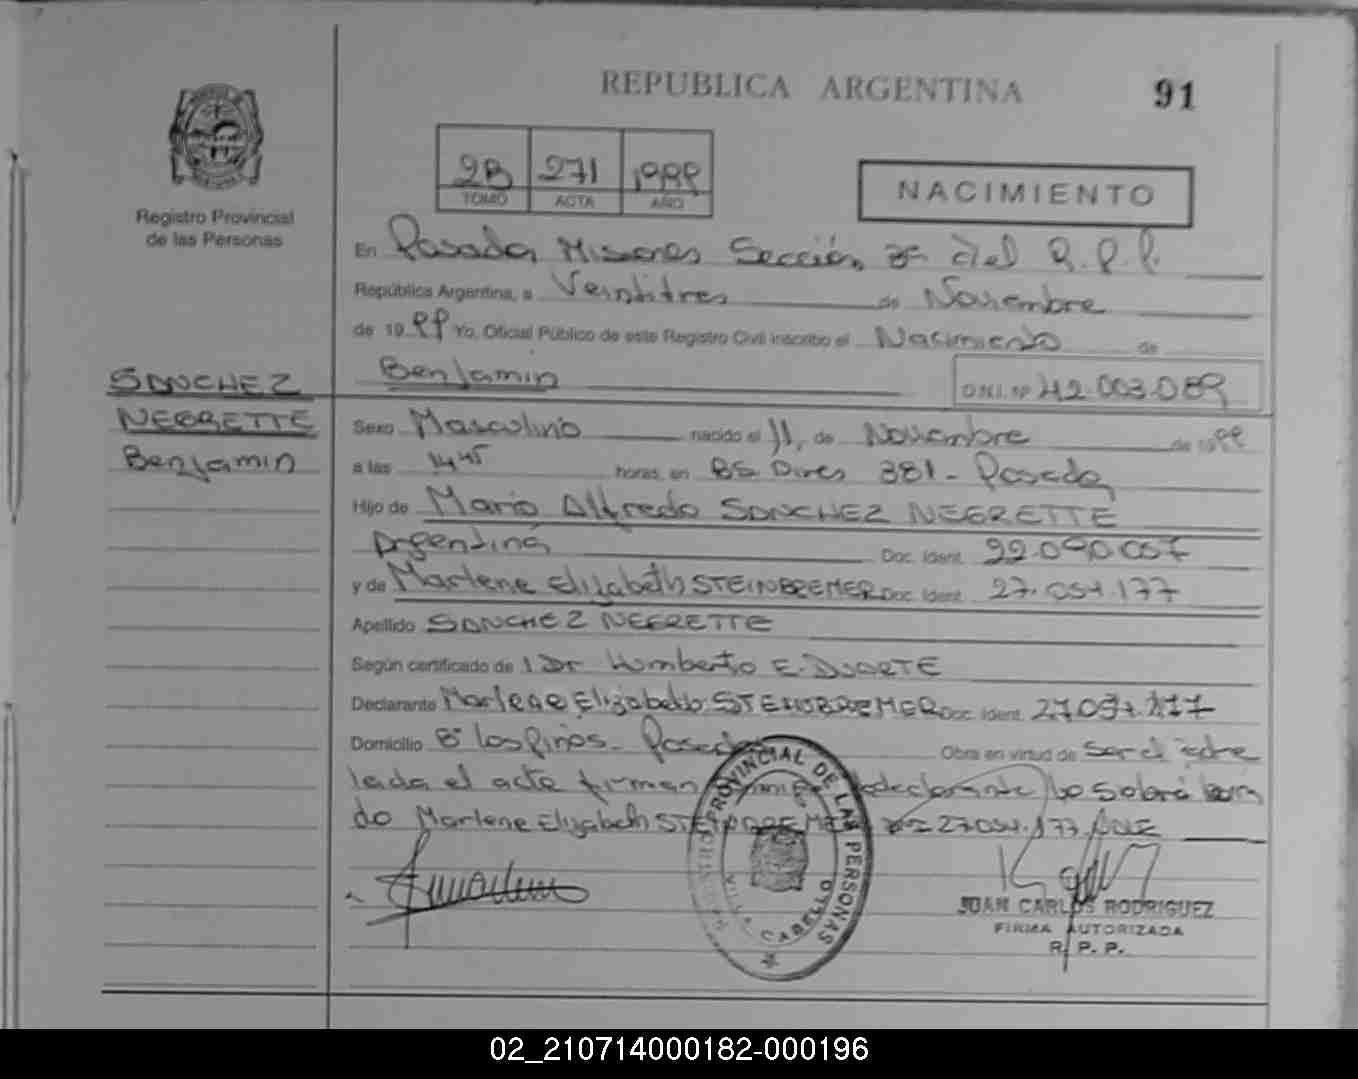 REPUBLICA ARGENTINA
91
2B 271 1999
TOMO ACTA AÑO
NACIMIENTO
Registro Provincial
de las Personas
En Posadas Misiones Sección 3ª del R.P.P.
República Argentina, a Veintitres de Noviembre
de 1999 Yo, Oficial Público de este Registro Civil inscribo el Nacimiento de
Benjamin D.N.I. Nº 42.003.089
SANCHEZ
NEGRETTE
Benjamin
Sexo Masculino nacido el 11, de Noviembre de 1999
a las 14 45 horas, en Bs Aires 381 - Posadas
Hijo de Mario Alfredo SANCHEZ NEGRETTE
Argentina Doc. Ident. 22.090.057
y de Marlene Elizabeth STEINBREMER Doc. Ident. 27.094.177
Apellido SANCHEZ NEGRETTE
Según certificado de Dr Humberto E. DUARTE
Declarante Marlene Elizabeth STEINBREMER Doc. Ident. 27.094.177
Domicilio Bº los Pinos - Posadas Obra en virtud de ser el
leida el acta firman declarante
do Marlene Elizabeth STEINBREMER 27.094.177
REGISTRO PROVINCIAL DE LAS PERSONAS
VILLA CABELLO
JUAN CARLOS RODRIGUEZ
FIRMA AUTORIZADA
R. P. P.
02_210714000182-000196